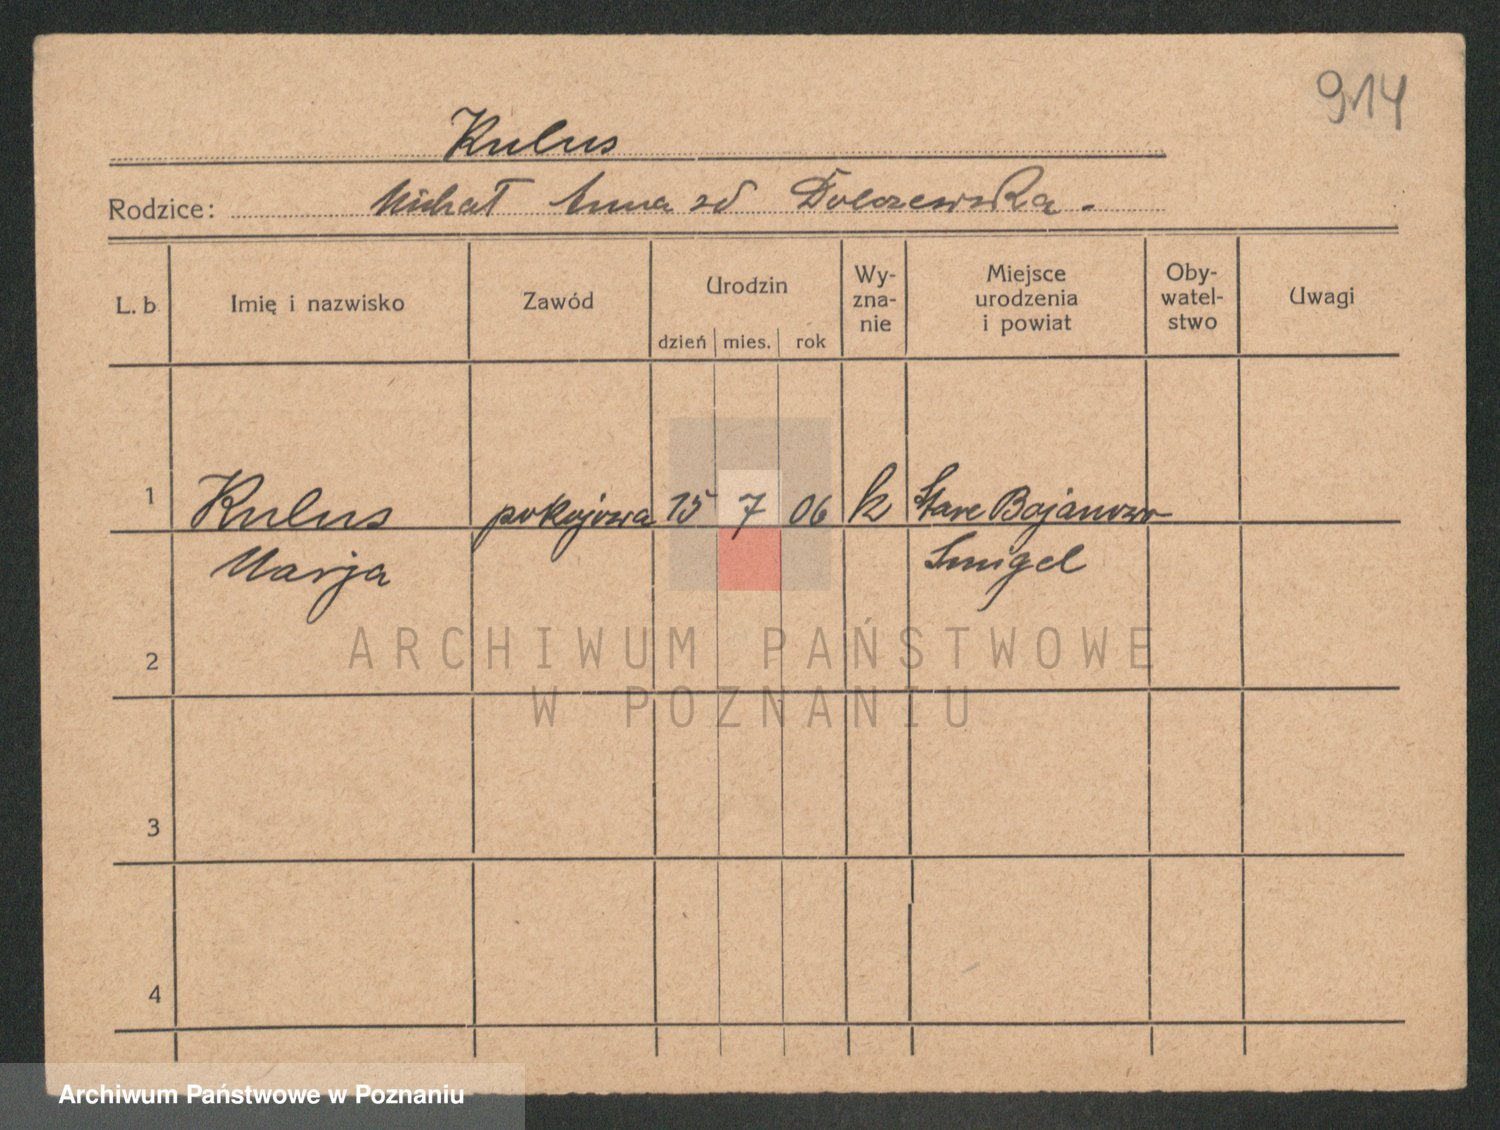 914
Kulus
Rodzice: Michał Anna zd Dolczewska.
L. b. Imię i nazwisko Zawód Urodzin Wy-zna-nie Miejsce urodzenia i powiat Oby-watel-stwo Uwagi
dzień mies. rok
1 Kulus pokojowa 15 7 06 k Stare Bojanowo
Marja Smigel
2
3
4
ARCHIWUM PAŃSTWOWE
W POZNANIU
Archiwum Państwowe w Poznaniu